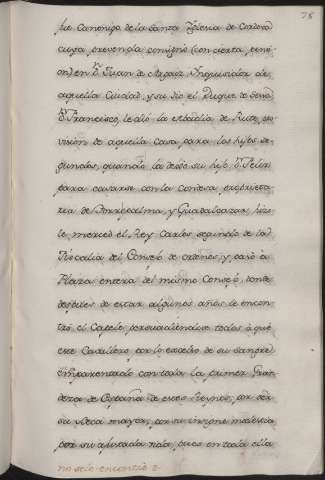 78
fue Canonigo de la Santa Iglesia de Cordova
cuya prevenda consiguio (con cierta pension) en
on) en D. Juan de
aquella Ciudad, y su tio el Duque de
D. Francisco, le dio la
vision de aquella Casa, para los hijos se-
gundos, quando la dexo su hijo D. Felix
para casarse con la Condesa, propieta-
ria de Borrepalma, y Guadalcazar, hizo
le merced el Rey Carlos segundo de la
Fiscalia del Consejo de ordenes, y pasó à
Plaza entera del mismo Consejo, donde
despues de estar algunos años le encon-
tró el Capelo, persuadiendose todos à que
este Cavallero por lo excelso de su sangre
emparentado con toda la primer Gran
deza de España de estos Reynos, por ser
su Vteca mayor, por su insigne modestia
por su ajustada vida, pues en toda ella
no solo encontró